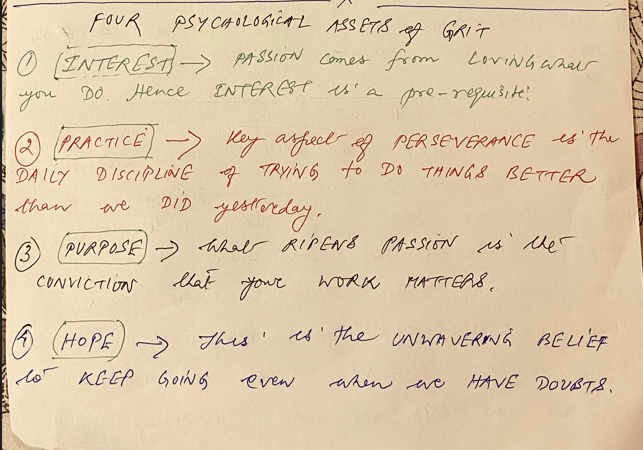 FOUR PSYCHOLOGICAL ASSETS of GRIT
① INTEREST → PASSION comes from LOVING what
you DO. Hence INTEREST is a pre-requisite.
② PRACTICE → Key aspect of PERSEVERANCE is the
DAILY DISCIPLINE of TRYING to DO THINGS BETTER
than we DID yesterday.
③ PURPOSE → What RIPENS PASSION is the
CONVICTION that your WORK MATTERS.
④ HOPE → This is the UNWAVERING BELIEF
to KEEP GOING even when we HAVE DOUBTS.